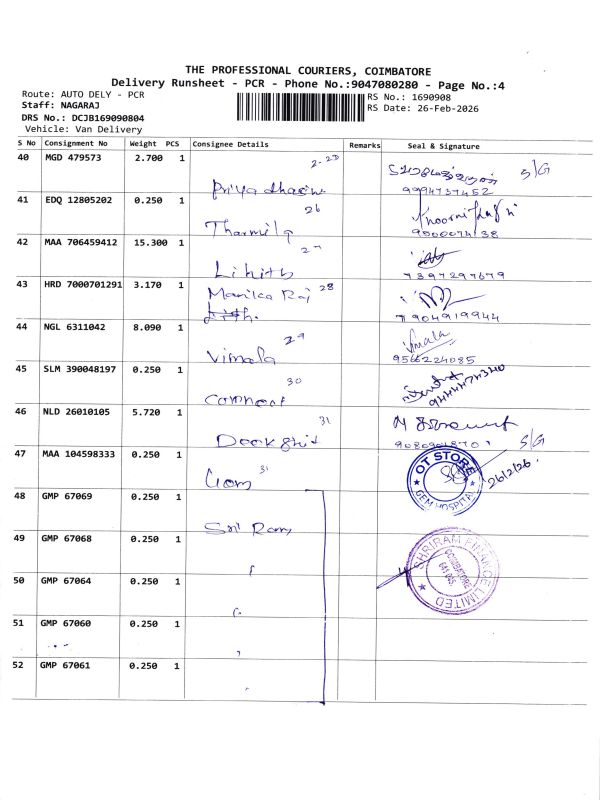 THE PROFESSIONAL COURIERS, COIMBATORE
Delivery Runsheet - PCR - Phone No.:9047080280 - Page No.:4
Route: AUTO DELY - PCR
Staff: NAGARAJ
DRS No.: DCJB169090804
Vehicle: Van Delivery
RS No.: 1690908
RS Date: 26-Feb-2026
S No Consignment No Weight PCS Consignee Details Remarks Seal & Signature
40 MGD 479573 2.700 1 S/G
9994737452
41 EDQ 12805202 0.250 1 26
Tharmila
42 MAA 706459412 15.300 1 27
Likith 7397297679
43 HRD 7000701291 3.170 1 Manika Raj 28
7904919944
44 NGL 6311042 8.090 1 29
Vimala Vimala
9566224085
45 SLM 390048197 0.250 1 30
9444474340
46 NLD 26010105 5.720 1 31
S/G
47 MAA 104598333 0.250 1 31
Gem
OT STORE
GEM HOSPITAL
26/2/26
48 GMP 67069 0.250 1
Sri Ram
49 GMP 67068 0.250 1
SHRIRAM FINANCE LIMITED
COIMBATORE
641 045
50 GMP 67064 0.250 1
51 GMP 67060 0.250 1
52 GMP 67061 0.250 1